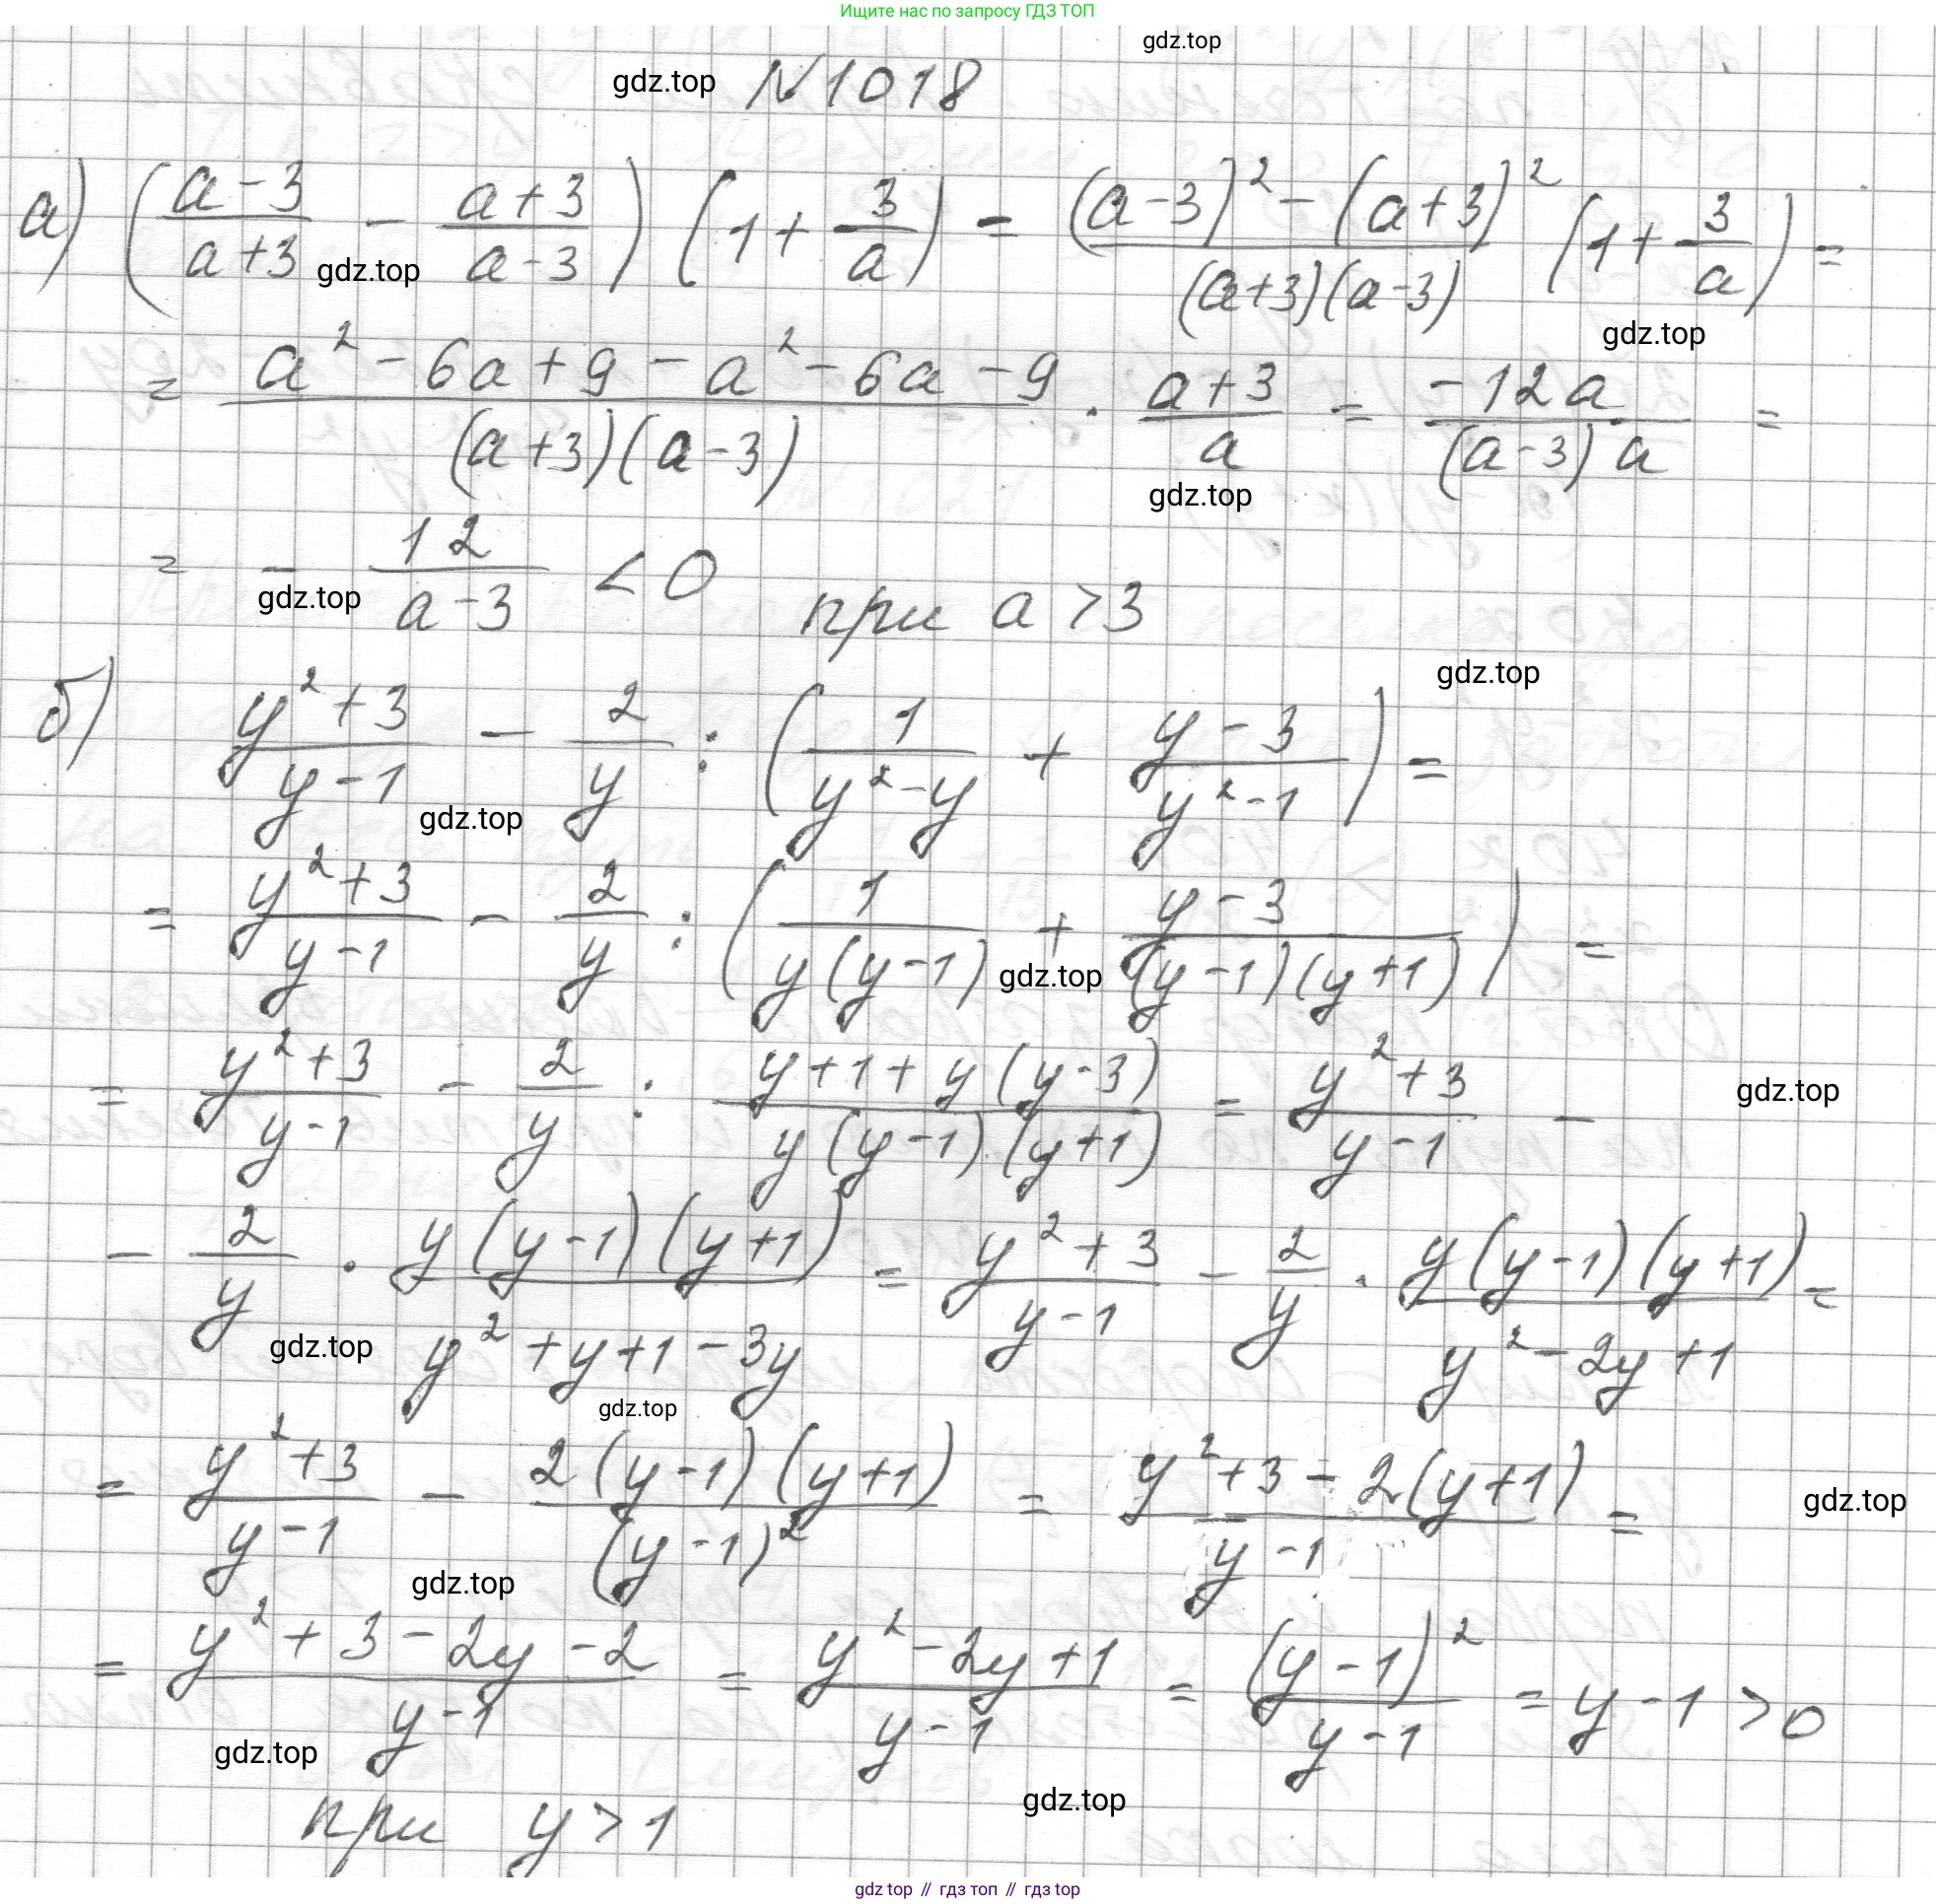 Ищите нас по запросу ГДЗ ТОП
gdz.top
gdz.top N 1018
а) ((a-3)/(a+3) - (a+3)/(a-3)) (1 + 3/a) = ((a-3)² - (a+3)²)/((a+3)(a-3)) (1 + 3/a) =
gdz.top
gdz.top
= (a² - 6a + 9 - a² - 6a - 9)/((a+3)(a-3)) · (a+3)/a = (-12a)/((a-3)a) =
gdz.top
= - 12/(a-3) < 0 при a > 3
gdz.top
gdz.top
б) (y²+3)/(y-1) - 2/y : (1/(y²-y) + (y-3)/(y²-1)) =
gdz.top
= (y²+3)/(y-1) - 2/y : (1/(y(y-1)) + (y-3)/((y-1)(y+1))) =
gdz.top
= (y²+3)/(y-1) - 2/y : (y+1+y(y-3))/(y(y-1)(y+1)) = (y²+3)/(y-1) -
gdz.top
- 2/y · (y(y-1)(y+1))/(y²+y+1-3y) = (y²+3)/(y-1) - 2/y · (y(y-1)(y+1))/(y²-2y+1) =
gdz.top
gdz.top
= (y²+3)/(y-1) - (2(y-1)(y+1))/((y-1)²) = (y²+3-2(y+1))/(y-1) =
gdz.top
gdz.top
= (y²+3-2y-2)/(y-1) = (y²-2y+1)/(y-1) = ((y-1)²)/(y-1) = y-1 > 0
gdz.top
gdz.top
при y > 1
gdz top // гдз топ // gdz top